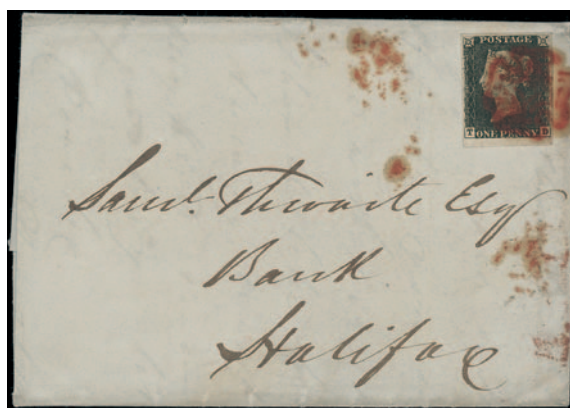 POSTAGE
T ONE PENNY D
Saml. Thwaite Esq
Bank
Halifax